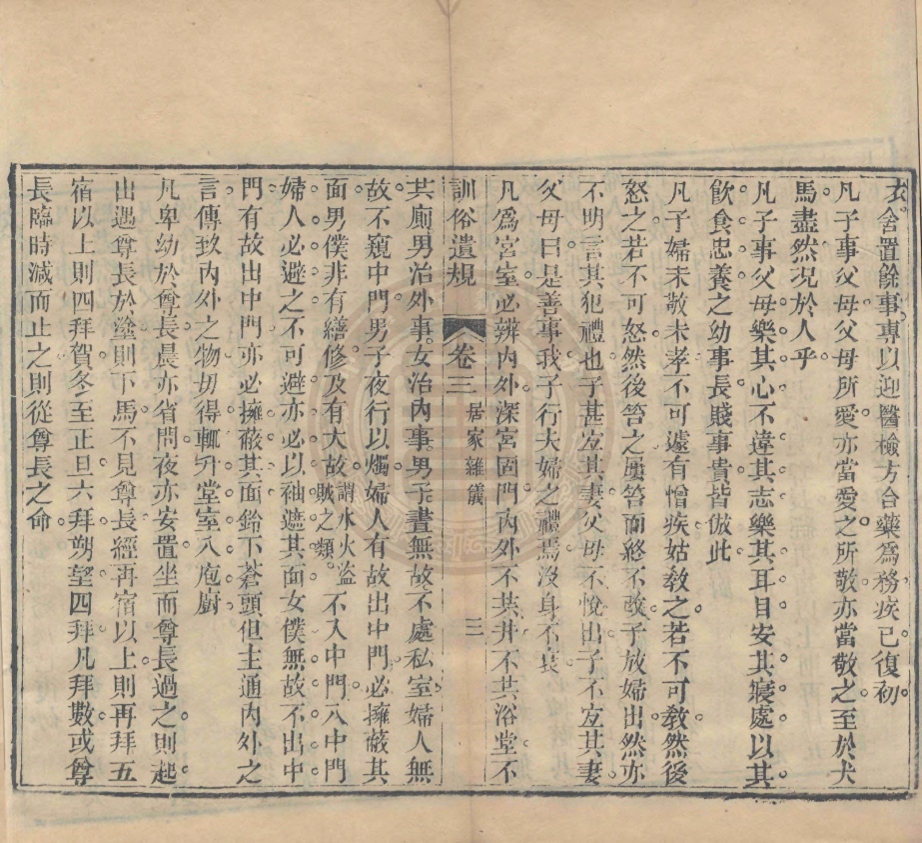 玄舍置餘事專以迎醫檢方合藥爲務疾已復初
凡子事父母父母所愛亦當愛之所敬亦當敬之至於犬
馬盡然况於人乎
凡子事父母樂其心不違其志樂其耳目安其寢處以其
飲食忠養之幼事長賤事貴皆倣此
凡子婦未敬未孝不可遽有憎疾姑教之若不可教然後
怒之若不可怒然後笞之屢笞而終不改子放婦出然亦
不明言其犯禮也子甚宜其妻父母不悅出子不宜其妻
父母曰是善事我子行夫婦之禮焉沒身不衰
凡爲宮室必辨內外深宮固門內外不共井不共浴堂不
訓俗遺規 卷三 居家雜儀 三
共廁男治外事女治內事男子晝無故不處私室婦人無
故不窺中門男子夜行以燭婦人有故出中門必擁蔽其
面男僕非有繕修及有大故謂水火盜賊之類不入中門入中門
婦人必避之不可避亦必以袖遮其面女僕無故不出中
門有故出中門亦必擁蔽其面鈴下蒼頭但主通內外之
言傳致內外之物毋得輒升堂室入庖廚
凡卑幼於尊長晨亦省問夜亦安置坐而尊長過之則起
出遇尊長於塗則下馬不見尊長經再宿以上則再拜五
宿以上則四拜賀冬至正旦六拜朔望四拜凡拜數或尊
長臨時減而止之則從尊長之命